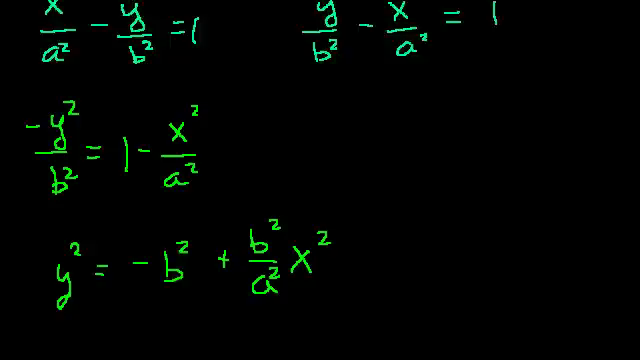 x/a² - y/b² = 1    y/b² - x/a² = 1
-y²/b² = 1 - x²/a²
y² = -b² + b²/a² x²